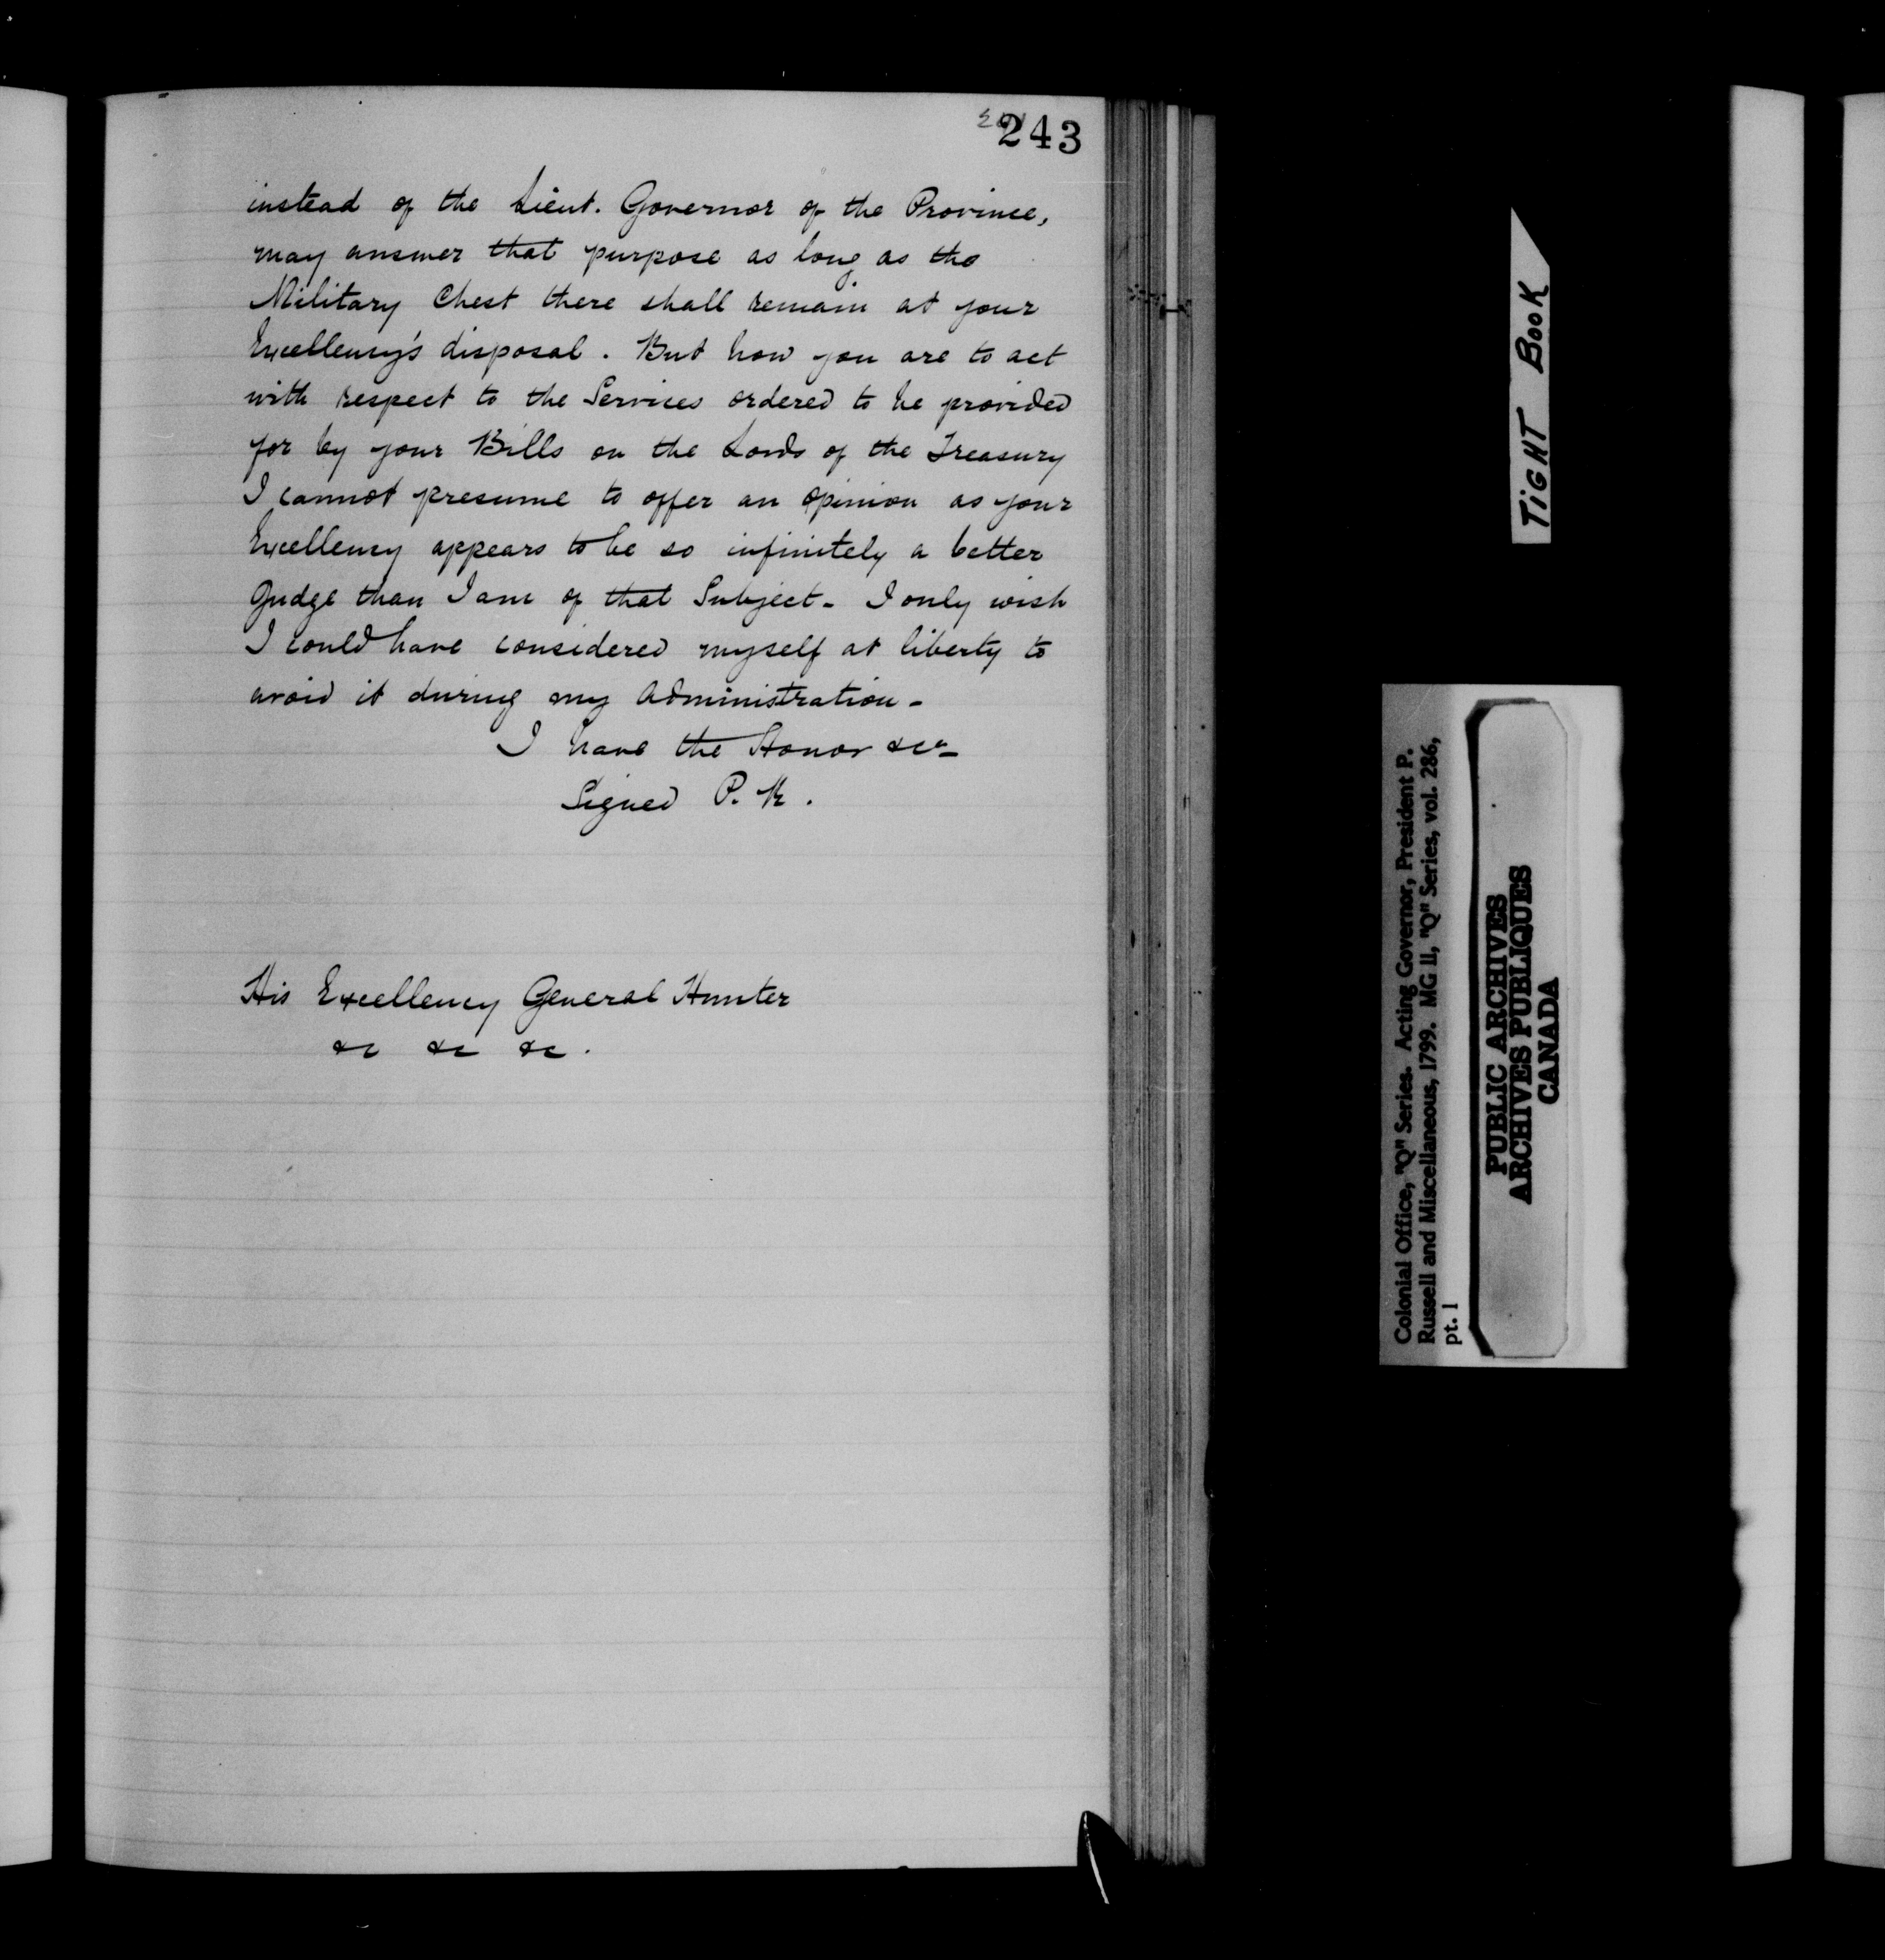 243
instead of the Lieut. Governor of the Province,
may answer that purpose as long as the
Military Chest there shall remain at your
Excellency's disposal. But how you are to act
with respect to the Services ordered to be provided
for by your Bills on the Lords of the Treasury
I cannot presume to offer an opinion as your
Excellency appears to be so infinitely a better
Judge than I am of that Subject - I only wish
I could have considered myself at liberty to
avoid it during my Administration -
I have the Honor &ca
Signed P. R.
His Excellency General Hunter
&c &c &c.
TIGHT BOOK
Colonial Office, "Q" Series. Acting Governor, President P.
Russell and Miscellaneous, 1799. MG 11, "Q" Series, vol. 286,
pt. 1
PUBLIC ARCHIVES
ARCHIVES PUBLIQUES
CANADA